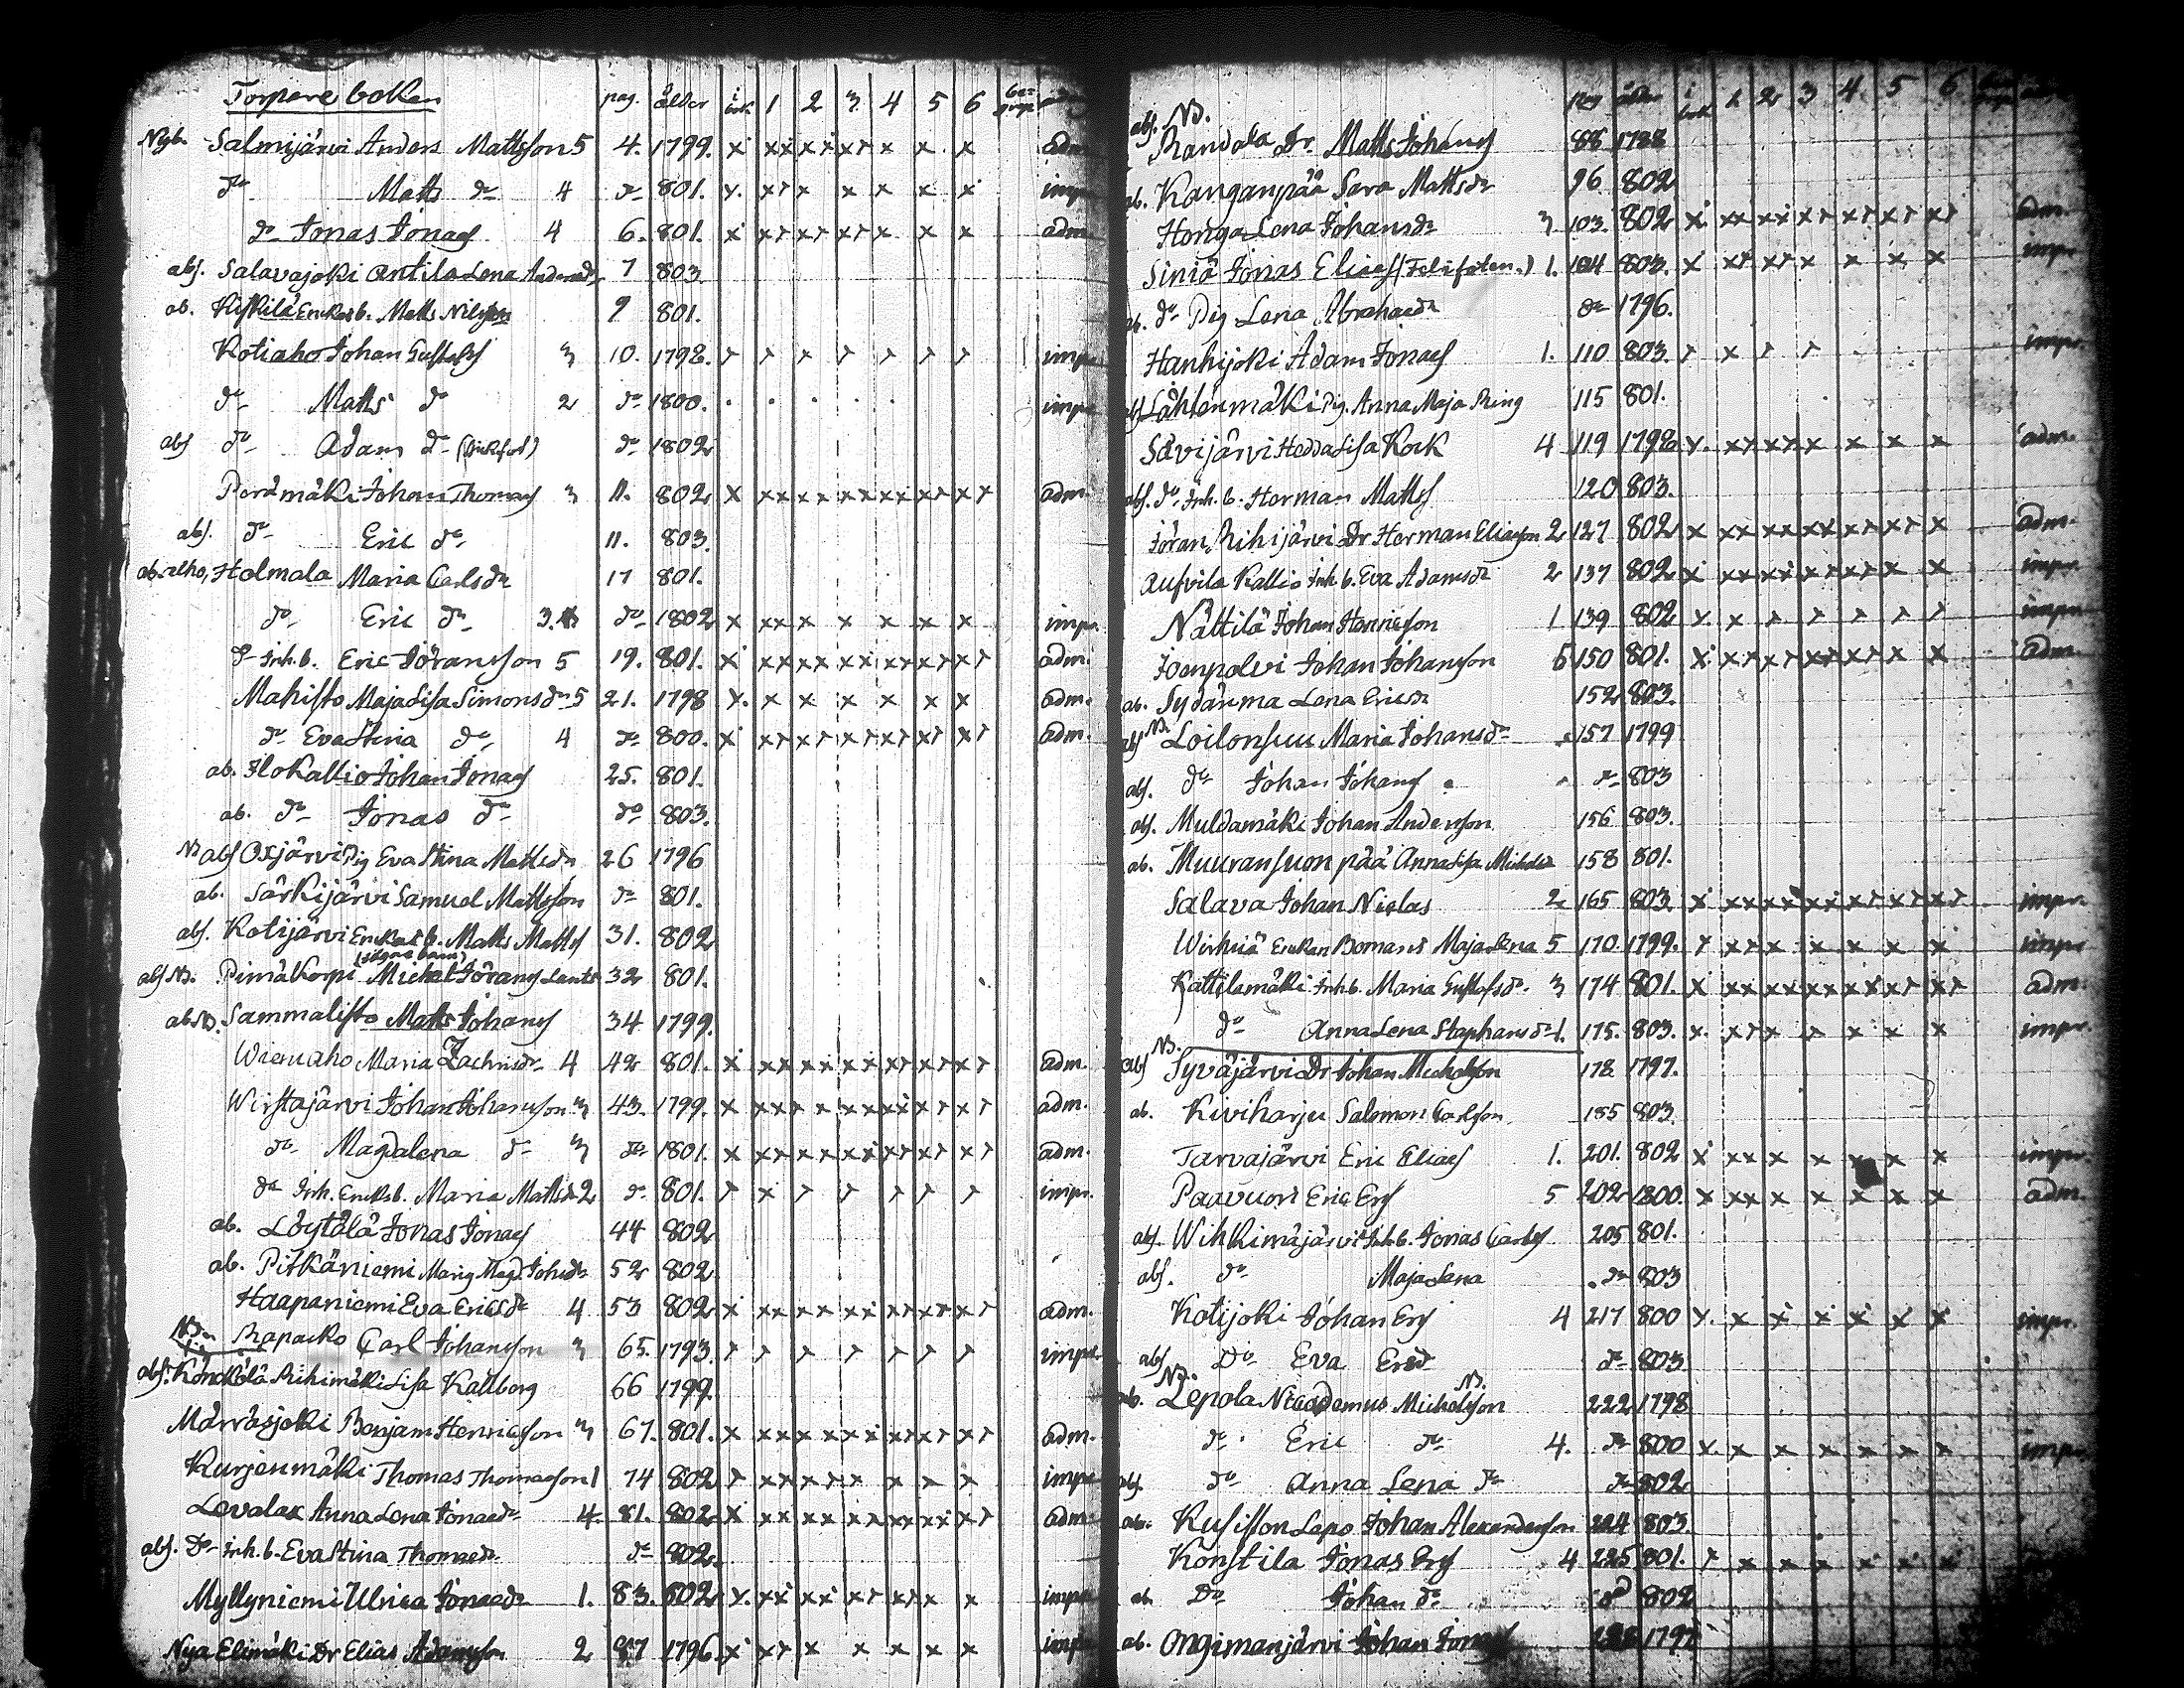 Torpare boken pag. ålder i bok 1 2 3 4 5 6 be- grep.
Nyb. Salmijärvi Anders Mattsson 5 4. 1799. x xx xx xx x x x adm.
do Matts do 4 do 801. x. xx x x x x x impr.
do Jonas Jonass. 4 6. 801. x xx xx xx x x x adm.
abs. Salavajoki Antila Lena Andersdr 7 803.
ab. Kiskilä Matts Nilsson 9 801.
Kotiaho Johan Gustafss 3 10. 1798. impr.
do Matts do 2 do 1800. impr.
abs do Adam do do 1802
Perämäki Johan Thomass 3 11. 802 x xx xx xx xx xx xx adm.
abs. do Eric do 11. 803.
ab. alho, Holmala Maria Carlsdr 17 801.
do Eric do 3. do 1802 x xx x x x x x impr.
do Inh. b. Eric Jöransson 5 19. 801. x xx xx xx xx xx xx adm.
Mahisto Maja Lisa Simonsdr 5 21. 1798 x. x x x x x x adm.
do Eva Stina do 4 do 800. x xx xx xx xx xx xx adm.
ab. Ilokallio Johan Jonass 25. 801.
ab. do Jonas do do 803.
NB abs Oxjärvi Pig Eva Stina Mattsdr 26 1796
ab. Särkijärvi Samuel Mattsson do 801.
abs. Kotijärvi Matts Mattss 31. 802
abs NB. Pimäkorpi Michel Jöranss 32 801.
abs NB. Sammalisto Matts Johanss 34 1799.
Wienaho Maria Zachrisdr 4 42 801. x xx xx xx xx xx xx adm.
Wirstajärvi Johan Johansson 3 43. 1799. x xx x x xx xx xx xx adm.
do Magdalena do 3 do 1801. x xx xx xx xx xx xx adm.
do Inh. Maria Mattsdr 2 do 801. impr.
ab. Löytälä Jonas Jonass 44 802
ab. Pitkäniemi Maria Magd. Johsdr 52 802
Haapaniemi Eva Ericsdr 4 53 802 x xx xx xx xx xx xx adm.
NB. Rapacko Carl Johansson 3 65. 1793. impr.
abs. Könckölä Riihimäki Lisa Kallberg 66 1799.
Märräsjoki Benjam Henricsson 3 67. 801. x xx xx xx xx xx xx adm.
Kurjenmäki Thomas Thomasson 1 74 802 impr.
Levalax Anna Lena Jonasdr 4. 81. 802 x xx xx xx xx xx xx adm.
abs. Do Inh. b. Eva Stina Thomasdr do 802.
Myllyniemi Ulrica Jonasdr 1. 83. 802 x. xx xx xx xx x x impr.
Nya Elimäki Dr Elias Adamsson 2 87 1796. x xx x x x x x impr.
pag ålder i bok 1 2 3 4 5 6
abs. NB.
Randala Dr. Matts Johanss 88 1788
ab. Kanganpää Sara Mattsdr 96 802
Honga Lena Johansdr 3 103. 802 x xx xx xx xx xx xx adm.
Siniä Jonas Eliass 1. 104 803. x xx xx x x x x impr.
ab. do Pig Lena Abrahasdr do 1796.
Hanhijoki Adam Jonass 1. 110 803. impr.
abs Lähtenmäki Pig. Anna Maja Ring 115 801.
Savijärvi Hedda Lisa Kock 4 119 1798 x. xx xx x x x x adm.
abs. do Inh. b. Herman Mattss 120 803.
Jöran Riihijärvi Dr Herman Eliasson 2 127 802 x xx xx xx xx xx x adm.
Aufvila Kallio Inh. b. Eva Adamsdr 2 137 802 x xx xx xx xx x x impr.
Nättilä Johan Henricsson 1 139 802 impr.
Joenpolvi Johan Johansson 5 150 801. x xx xx xx xx x x adm.
ab. Sydänma Lena Ericsdr 152 803.
abs NB. Loilonsuu Maria Johansdr 157 1799
abs. do Johan Johanss do 803
abs. Muldamäki Johan Andersson 156 803.
ab. Muuransuonpää Anna Lisa Michelsdr 158 801.
Salava Johan Niclas 2 165 803. x xx xx xx xx xx xx impr.
Wirkiä Maja Lena 5 170. 1799. impr.
Kattilamäki Inh. b. Maria Gustafsdr. 3 174 801. x xx xx xx xx xx xx adm.
do Anna Lena Staphansdr 1. 175. 803. x. xx x x x x impr.
NB.
abs Syväjärvi Dr Johan Michelsson 178 1797.
ab. Kiviharju Salomon Carlsson 185 803.
Tarvajärvi Eric Eliass 1. 201. 802 x xx x x x x x impr.
Paavuori Eric Ers 5 202 1800. x xx x x x x x adm.
abs. Wihkimäjärvi Inh. b. Jonas Carlss 205 801.
abs. do Maja Lena do 803
Kotijoki Johan Ers 4 217 800 x. x x x x x x impr.
abs Do Eva Ersdr do 803
NB.
ab. Lepola Nicodemus Michelsson NB. 222 1798
do Eric do 4. do 800 x. x x x x x x impr.
abs. do Anna Lena do do 802
ab. Kusisson Lepo Johan Alexandersson 224 803.
Konstila Jonas Ers 4 225 801. x x x x x x
ab. Do Johan do do 802
ab. Ongimanjärvi Johan